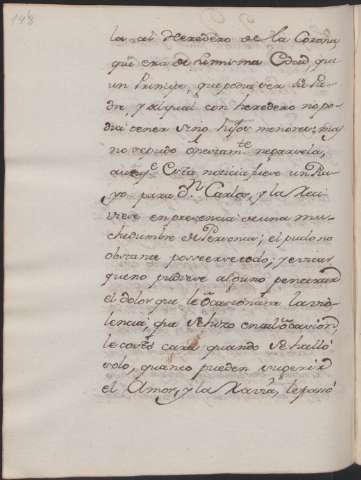 148
la al Heredero de la Corona
que era de su misma Edad, que
un Principe, que podia ser su Pa-
dre, y al qual con heredero no po-
dia tener sino hijos menores; mas
no se pudo
Esta noticia fue un Ra-
yo para Dn. Carlos, y la
en presencia de una mu-
chedumbre de Personas; el pudo no
obstante poseerse
que no pudiese alguno penetrar
el dolor que le ocasionava la vio-
lencia, que se hizo en esta ocasion,
le costó cara quando se halló
solo, quanto pueden sugerir
el Amor, y la Ravia, le pasó